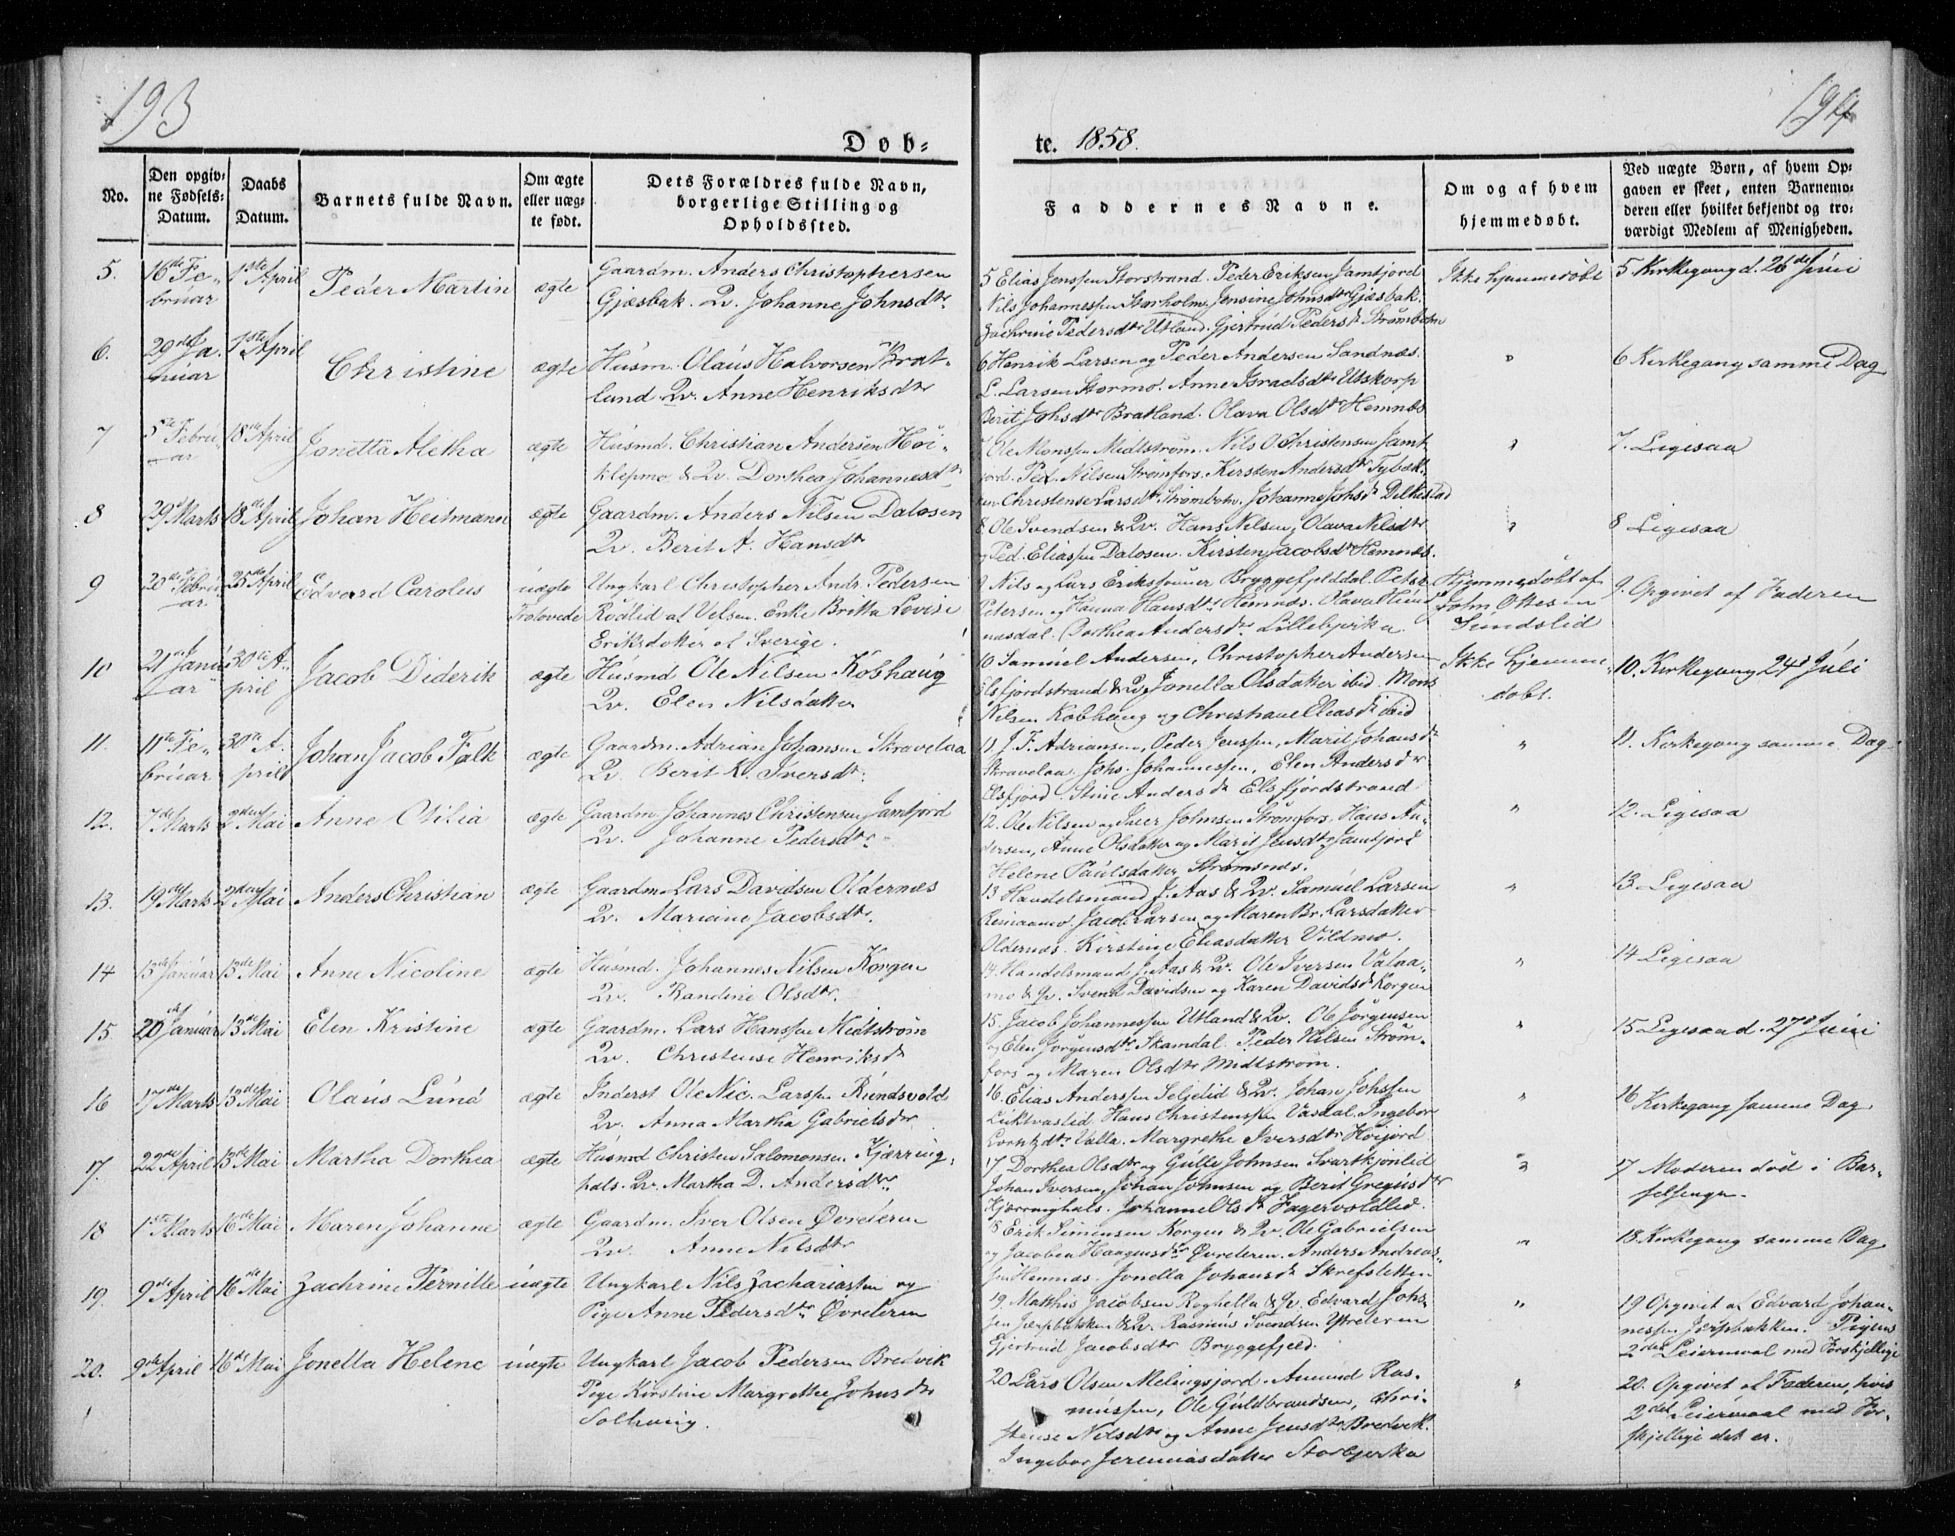 193
194
Døb-
te. 1858.
No.
Den opgiv-
ne Fødsels-
Datum.
Daabs
Datum.
Barnets fulde Navn.
Om ægte
eller uæg-
te født.
Dets Forældres fulde Navn,
borgerlige Stilling og
Opholdssted.
Faddernes Navne.
Om og af hvem
hjemmedøbt.
Ved uægte Børn, af hvem Op-
gaven er skeet, enten Barnemo-
deren eller hvilket bekjendt og tro-
værdigt Medlem af Menigheden.
5. 16de Fe-
bruar
1ste April
Peder Martin
ægte
Gaardm. Anders Christophersen
Gjæsbak. Qv. Johanne Johnsdtr.
5 Elias Jenssen Storstrand. Peder Eriksen Jamtjord
Nils Johannessen Storholm, Jensine Johnsdtr Gjæsbak.
Zachrine Pedersdtr Utland. Gjertrud Pedersdr Strømbotn
Ikke hjemmedøbt
5 Kirkegang d. 26de Juni
6. 29de Ja-
nuar
1ste April
Christine
ægte
Husm. Olaus Halvorsen Brat-
lund Qv. Anne Henriksdtr
6 Henrik Larsen og Peder Andersen Sandnæs.
L. Larsen Stormo. Anne Israelsdtr Utskorp
Berit Johsdtr Bratland. Olava Olsdtr Hemnæs
"
6 Kirkegang samme Dag
7 5te Febru-
ar
18de April
Jonetta Aletha
ægte
Husmd. Christian Andersen Høi-
klepmo. & Qv. Dorthea Johannesdtr
7. Ole Monsen Medtstrøm. Nils O Christensen Jamt
jord. Ped. Nilsen Strømfors. Kirsten Andersdtr Tybæk-
ken Christense Larsdtr Strømbotn. Johanne Johsdr Dilkestad
"
7. Ligesaa
8 29de Marts
18de April
Johan Heitmann
ægte
Gaardm. Anders Nilsen Dalosen
Qv. Berit A. Hansdtr
8. Ole Svendsen & Qv. Hans Nilsen, Olava Nilsdtr
og Ped. Eliassen Dalosen. Kirsten Jacobsdtr Hemnæs.
"
8 Ligesaa
9 20de Febru-
ar.
25de April
Edvard Carolus
uægte
Trolovede
Ungkarl Christopher Andr. Pedersen
Rødlid af Velsen. Enke Britta Lovise
Eriksdatter af Sverige.
9 Nils og Lars Erikssønner Bryggefjelddal. Peter
Petersen og Hanna Hansdtr Hemnæs. Olava
Dorthea Andersdtr Lillebjerka
Hjemmedøbt af
John Ottesen
Sundslid
9. Opgivet af Faderen
10 21de Janu-
ar
30te A-
pril
Jacob Diderik
ægte
Husmd Ole Nilsen Kobhaug
Qv. Elen Nilsdatter
10 Samuel Andersen, Christopher Andersen
Elsfjordstrand & Qv, Jonella Olsdatter ibid. Mons
Nilsen Kobhaug og Christiane Eliasdr ibid
Ikke hjemme-
døbt.
10. Kirkegang 24de Juli
11. 11te Fe-
bruar
30te A-
pril
Johan Jacob Falk
ægte
Gaardm. Adrian Johansen Stravelaa
Qv. Berit K. Iversdtr.
11. J. F. Adriansen, Peder Jenssen, Marit Johansdr
Stravelaa. Johs. Johannessen, Elen Andersdr
Elsfjord. Stine Andersdr Elsfjordstrand
"
11. Kirkegang samme Dag
12. 7de Marts
2den Mai
Anne Otilia
ægte
Gaardm. Johannes Christensen Jamtjord
Qv. Johanne Pedersdtr.
12. Ole Nilsen og Iver Johnsen Strømfors. Hans An-
dersen, Anne Olsdatter og Marit Jensdtr Jamtjord
Helene Paulsdatter Strømsnæs.
"
12. Ligesaa
13. 19de Marts
2den Mai
Anders Christian
ægte
Gaardm Lars Davidsen Oldernæs
Qv. Marcine Jacobsdtr.
13 Handelsmand J. Aas & Qv. Samuel Larsen
Jacob Larsen og Maren Br. Larsdatter
Oldernæs. Kirstine Eliasdatter Vildmo.
"
13. Ligesaa
14 15de Januar
13de Mai
Anne Nicoline
ægte
Husmd. Johannes Nilsen Korgen
Qv. Randine Olsdtr.
14. Handelsmand J. Aas & Qv. Ole Iversen Valaa-
mo & Qv. Svend Davidsen og Karen Davidsdr Korgen
"
14 Ligesaa
15. 20de Januar
13de Mai
Elen Kristine
ægte
Gaardm. Lars Hanssen Midtstrøm
Qv. Christense Henriksdr
15. Jacob Johannessen Utland & Qv. Ole Jørgensen
og Elen Jørgensdtr Skamdal. Peder Nilsen Strøm-
fors og Maren Olsdtr Midtstrøm.
"
15 Ligesaa d. 27de Juni
16 17de Marts
13de Mai
Olaus Lund
ægte
Inderst Ole Nic. Larssen Rundsvold
Qv. Anna Martha Gabrielsdtr
16. Elias Anderssen Seljelid & Qv. Johan Johssen
Luktvaslid. Hans Christenssen Vasdal. Ingebor
Lorntzdtr Valla. Margrethe Iversdtr Høijord
"
16 Kirkegang samme Dag
17. 22de April
13de Mai
Martha Dorthea
ægte
Husmd Christen Salomonsen Kjærring-
hals. Qv. Martha D. Andersdtr.
17 Dorthea Olsdtr og Gulle Johnsen Svartkjønlid
Johan Iversen, Johan Johnsen og Berit Gregusdtr
Kjærringhals. Johanne Olsdr Fagervoldlid.
"
17 Moderen død i Bar-
selsengen.
18 1ste Marts
16de Mai
Maren Johanne
ægte
Gaardm. Iver Olsen Øvreleren
Qv. Anne Nilsdtr
18 Erik Simensen Korgen & Qv. Ole Gabrielsen
og Jacobea Haagensdtr Øvreleren. Anders Andreas-
sen Hemnæs. Jonella Johansdr Skrefsletten
"
18. Kirkegang samme Dag
19. 9de April
16de Mai
Zachrine Pernille
uægte
Ungkarl Nils Zachariassen og
Pige Anne Pedersdtr Øvreleren
19. Matthis Jacobsen Roghella & Qv. Edvard Johs-
sen Jerpbakken & Qv. Rasmus Svendsen Ytreleren
Gjertrud Jacobsdtr Bryggefjeld.
"
19 Opgivet af Edvard Johan-
nessen Jerpbakken. Pigens
2det Leiermaal med Forskjellige
20. 9de April
16de Mai
Jonella Helene
uægte
Ungkarl Jacob Pedersen Bredvik
Pige Kirstine Margrethe Johnsdtr
Solhaug.
20 Lars Olsen Melingsjord. Amund Ras-
mussen, Ole Guldbrandsen, Chri-
stense Nilsdtr og Anne Jensdtr Bredvik.
Ingebor Jeremiasdatter Storbjerka
"
20. Opgivet af Faderen, hvis
2det Leiermaal med For-
skjellige det er.